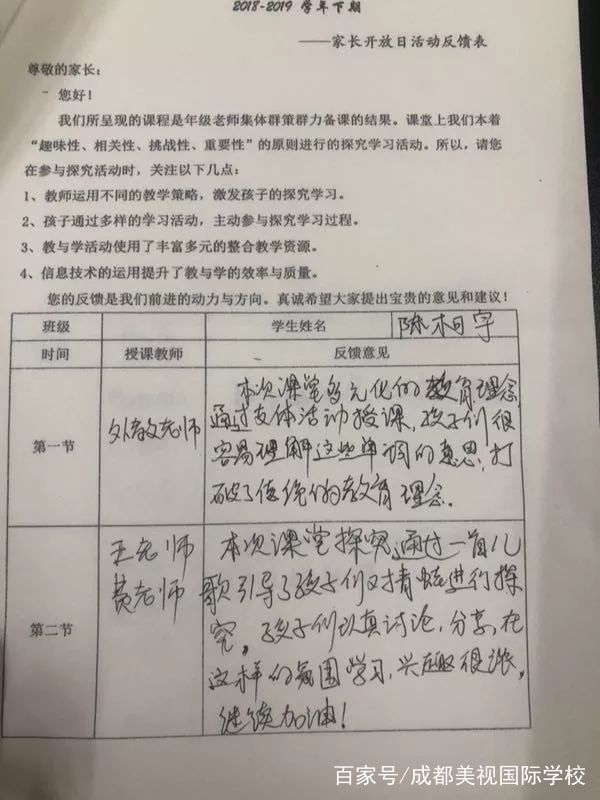 2018-2019 学年下期
——家长开放日活动反馈表
尊敬的家长：
您好！
我们所呈现的课程是年级老师集体群策群力备课的结果。课堂上我们本着
“趣味性、相关性、挑战性、重要性”的原则进行的探究学习活动。所以，请您
在参与探究活动时，关注以下几点：
1、教师运用不同的教学策略，激发孩子的探究学习。
2、孩子通过多样的学习活动，主动参与探究学习过程。
3、教与学活动使用了丰富多元的整合教学资源。
4、信息技术的运用提升了教与学的效率与质量。
您的反馈是我们前进的动力与方向。真诚希望大家提出宝贵的意见和建议！
班级 学生姓名 陈柯宇
时间 授课教师 反馈意见
第一节
外教老师
本次课堂多元化的教育理念，
通过支体活动授课，孩子们很
容易理解这些单词的意思，打
破了传统的教育理念。
第二节
王老师
黄老师
本次课堂探究，通过一首儿
歌引导了孩子们对青蛙进行探
究。孩子们认真讨论，分享，在
这样的氛围学习，兴趣很浓。
继续加油！
百家号/成都美视国际学校